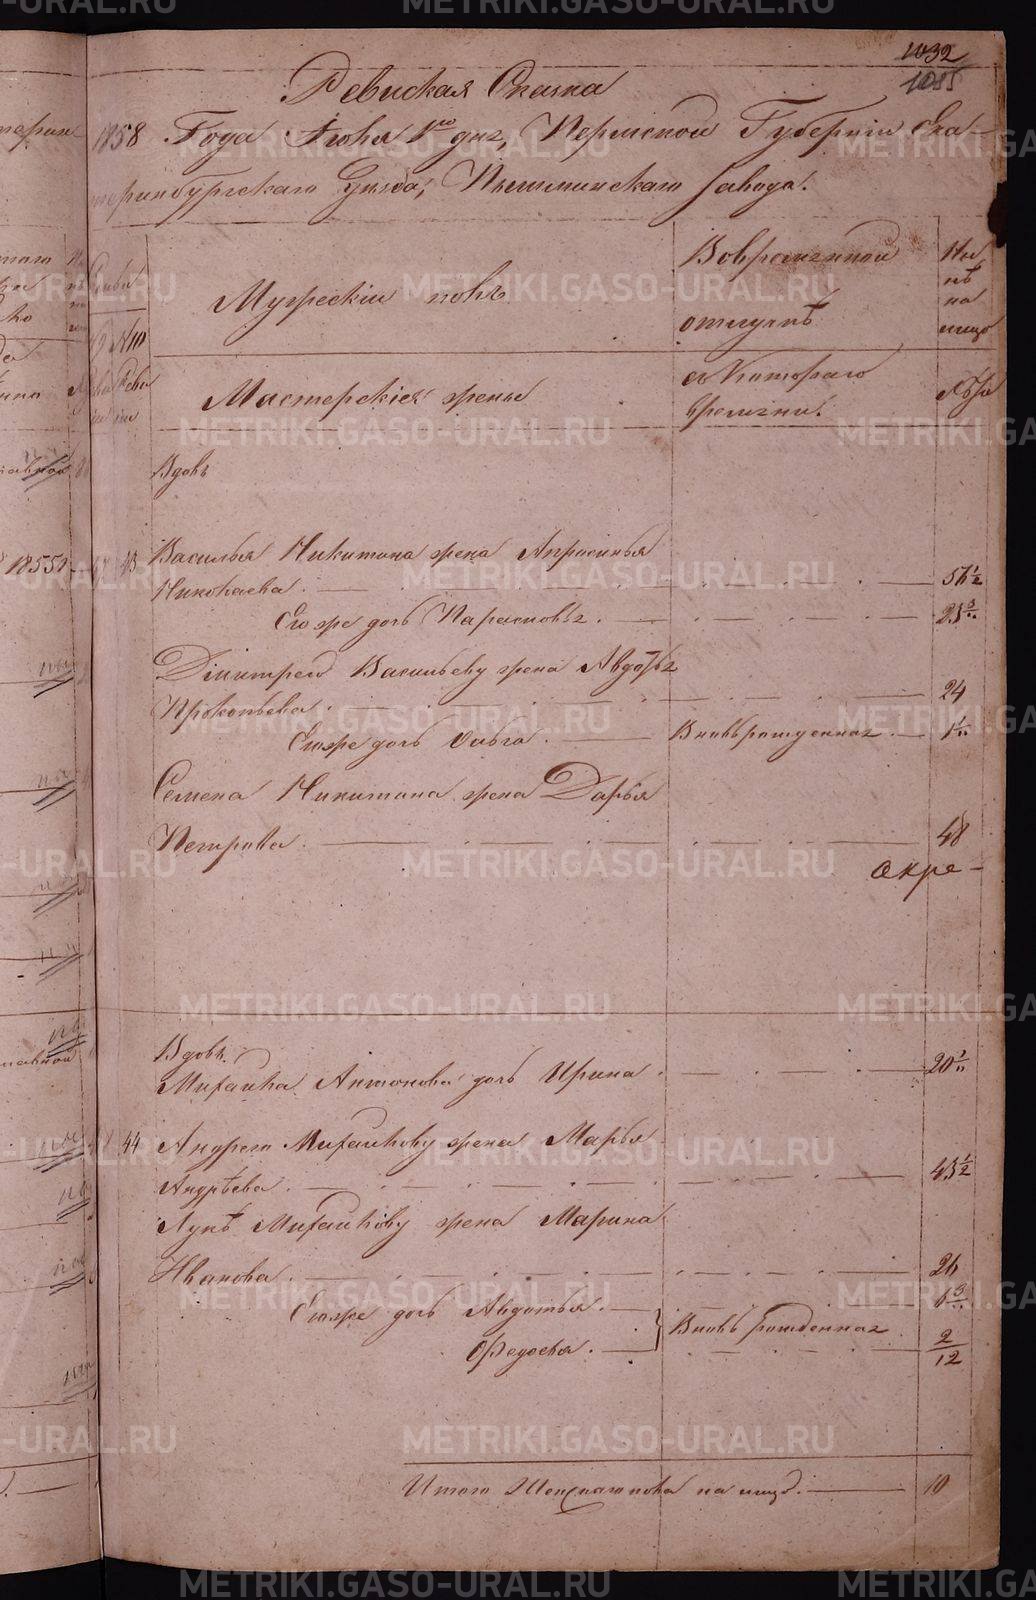 1032
1055
Ревиская Сказка
1858 Года Июня 1го дня, Пермской Губернии Ека-
теринбургскаго Уезда, Пышминскаго завода.
Мужескiй полъ
В овременной
отлучкѣ
Ны
нѣ
на
лицо
№10
Мастерскiя жены
съ котораго
времени.
Лѣта
Реви
зiи
Вдовъ
1855
43 Василья Никитина жена Апросинья
Николаева. 56 1/2
Его же дочь Парасковья. 23 3/"
Дмитрея Васильеву жена Авдотья
Прокопьева. 24
Его же дочь Ольга. Вновь рожденная 1 1/"
Семена Никитина жена Дарья
Петрова. 48
Акре-
Вдовъ.
Михаила Антонова дочь Ирина. 20 1/"
44 Андрею Михайлову жена Марья
Андрѣева. 43 1/2
Лукѣ Михайлову жена Марина
Иванова. 26
Его же дочь Авдотья. 6 3/"
Вновь рожденная
Федосья. 2/12
Итого Женскаго пола на лицо. 10
METRIKI.GASO-URAL.RU